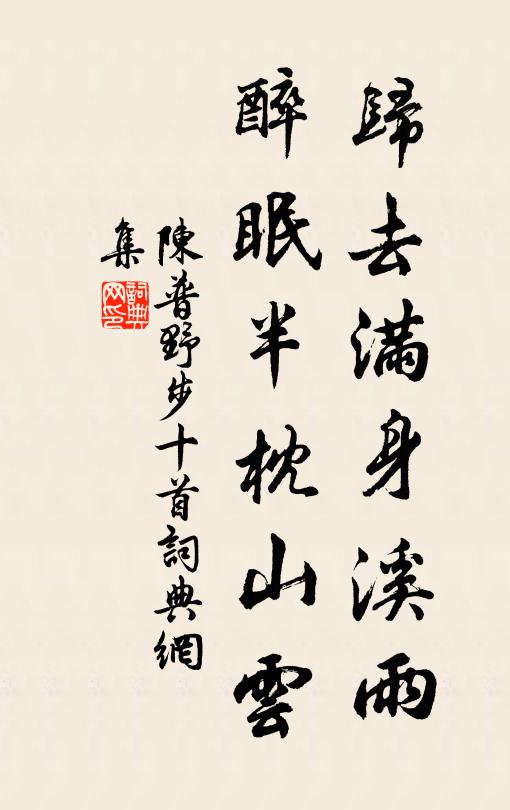 歸去滿身溪雨
醉眠半枕山雲
陳普野步十首詞典網
集
詞典
网印